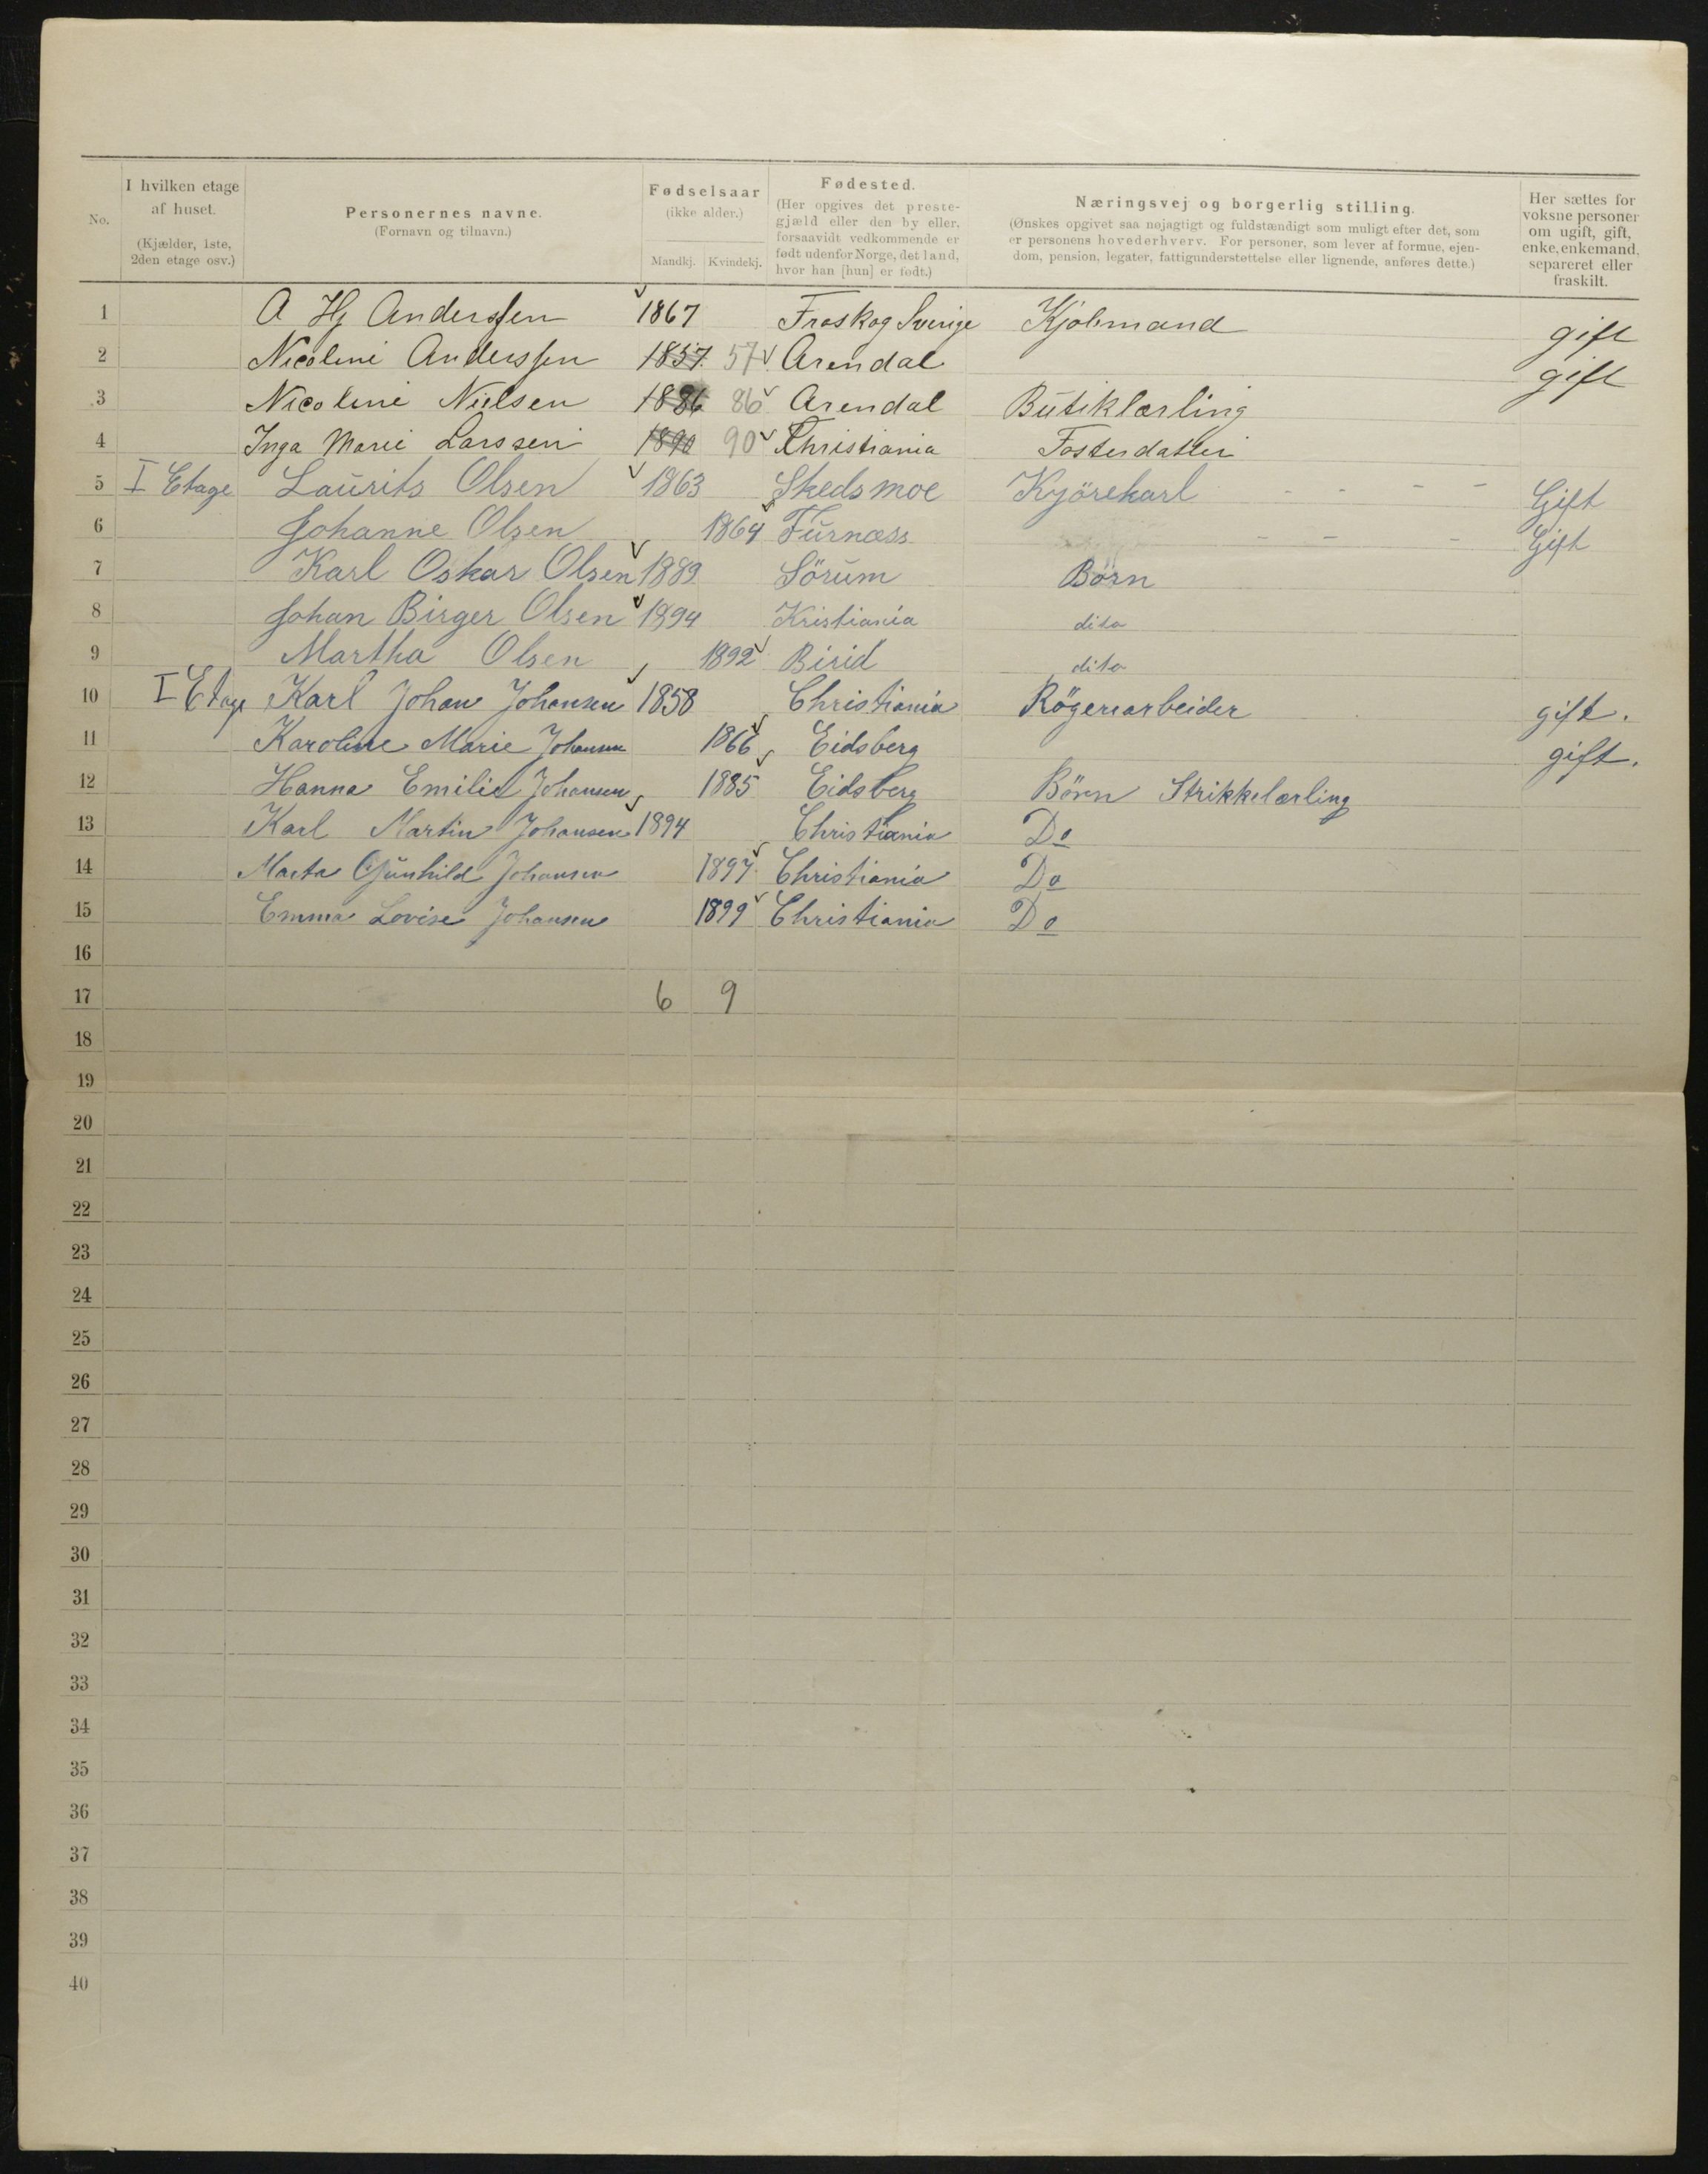 No. I hvilken etage af huset. (Kjælder, 1ste, 2den etage osv.) Personernes navne. (Fornavn og tilnavn.) Fødselsaar (ikke alder.) Mandkj. Kvindekj. Fødested. (Her opgives det prestegjæld eller den by eller, forsaavidt vedkommende er født udenfor Norge, det land, hvor han [hun] er født.) Næringsvej og borgerlig stilling. (Ønskes opgivet saa nøjagtigt og fuldstændigt som muligt efter det, som er personens hovederhverv. For personer, som lever af formue, ejendom, pension, legater, fattigunderstøttelse eller lignende, anføres dette.) Her sættes for voksne personer om ugift, gift, enke, enkemand, separeret eller fraskilt.
1 A Hj Anderssen 1867 Froskog Sverige Kjöbmand gift
2 Nicoline Anderssen 1857 57 Arendal gift
3 Nicoline Nielsen 1886 86 Arendal Butiklærling
4 Inga Marie Larssen 1890 90 Christiania Fosterdatter
5 I Etage Laurits Olsen 1863 Skedsmoe Kjörekarl - - - - Gift
6 Johanne Olsen 1864 Furnæss - - - Gift
7 Karl Oskar Olsen 1889 Sörum Börn
8 Johan Birger Olsen 1894 Kristiania dito
9 Martha Olsen 1892 Birid dito
10 I Etage Karl Johan Johansen 1858 Christiania Rögeriarbeider gift.
11 Karoline Marie Johansen 1866 Eidsberg gift.
12 Hanna Emilie Johansen 1885 Eidsberg Börn Strikkelærling
13 Karl Martin Johansen 1894 Christiania Do
14 Marta Gunhild Johansen 1897 Christiania Do
15 Emma Lovise Johansen 1899 Christiania Do
16
17 6 9
18
19
20
21
22
23
24
25
26
27
28
29
30
31
32
33
34
35
36
37
38
39
40